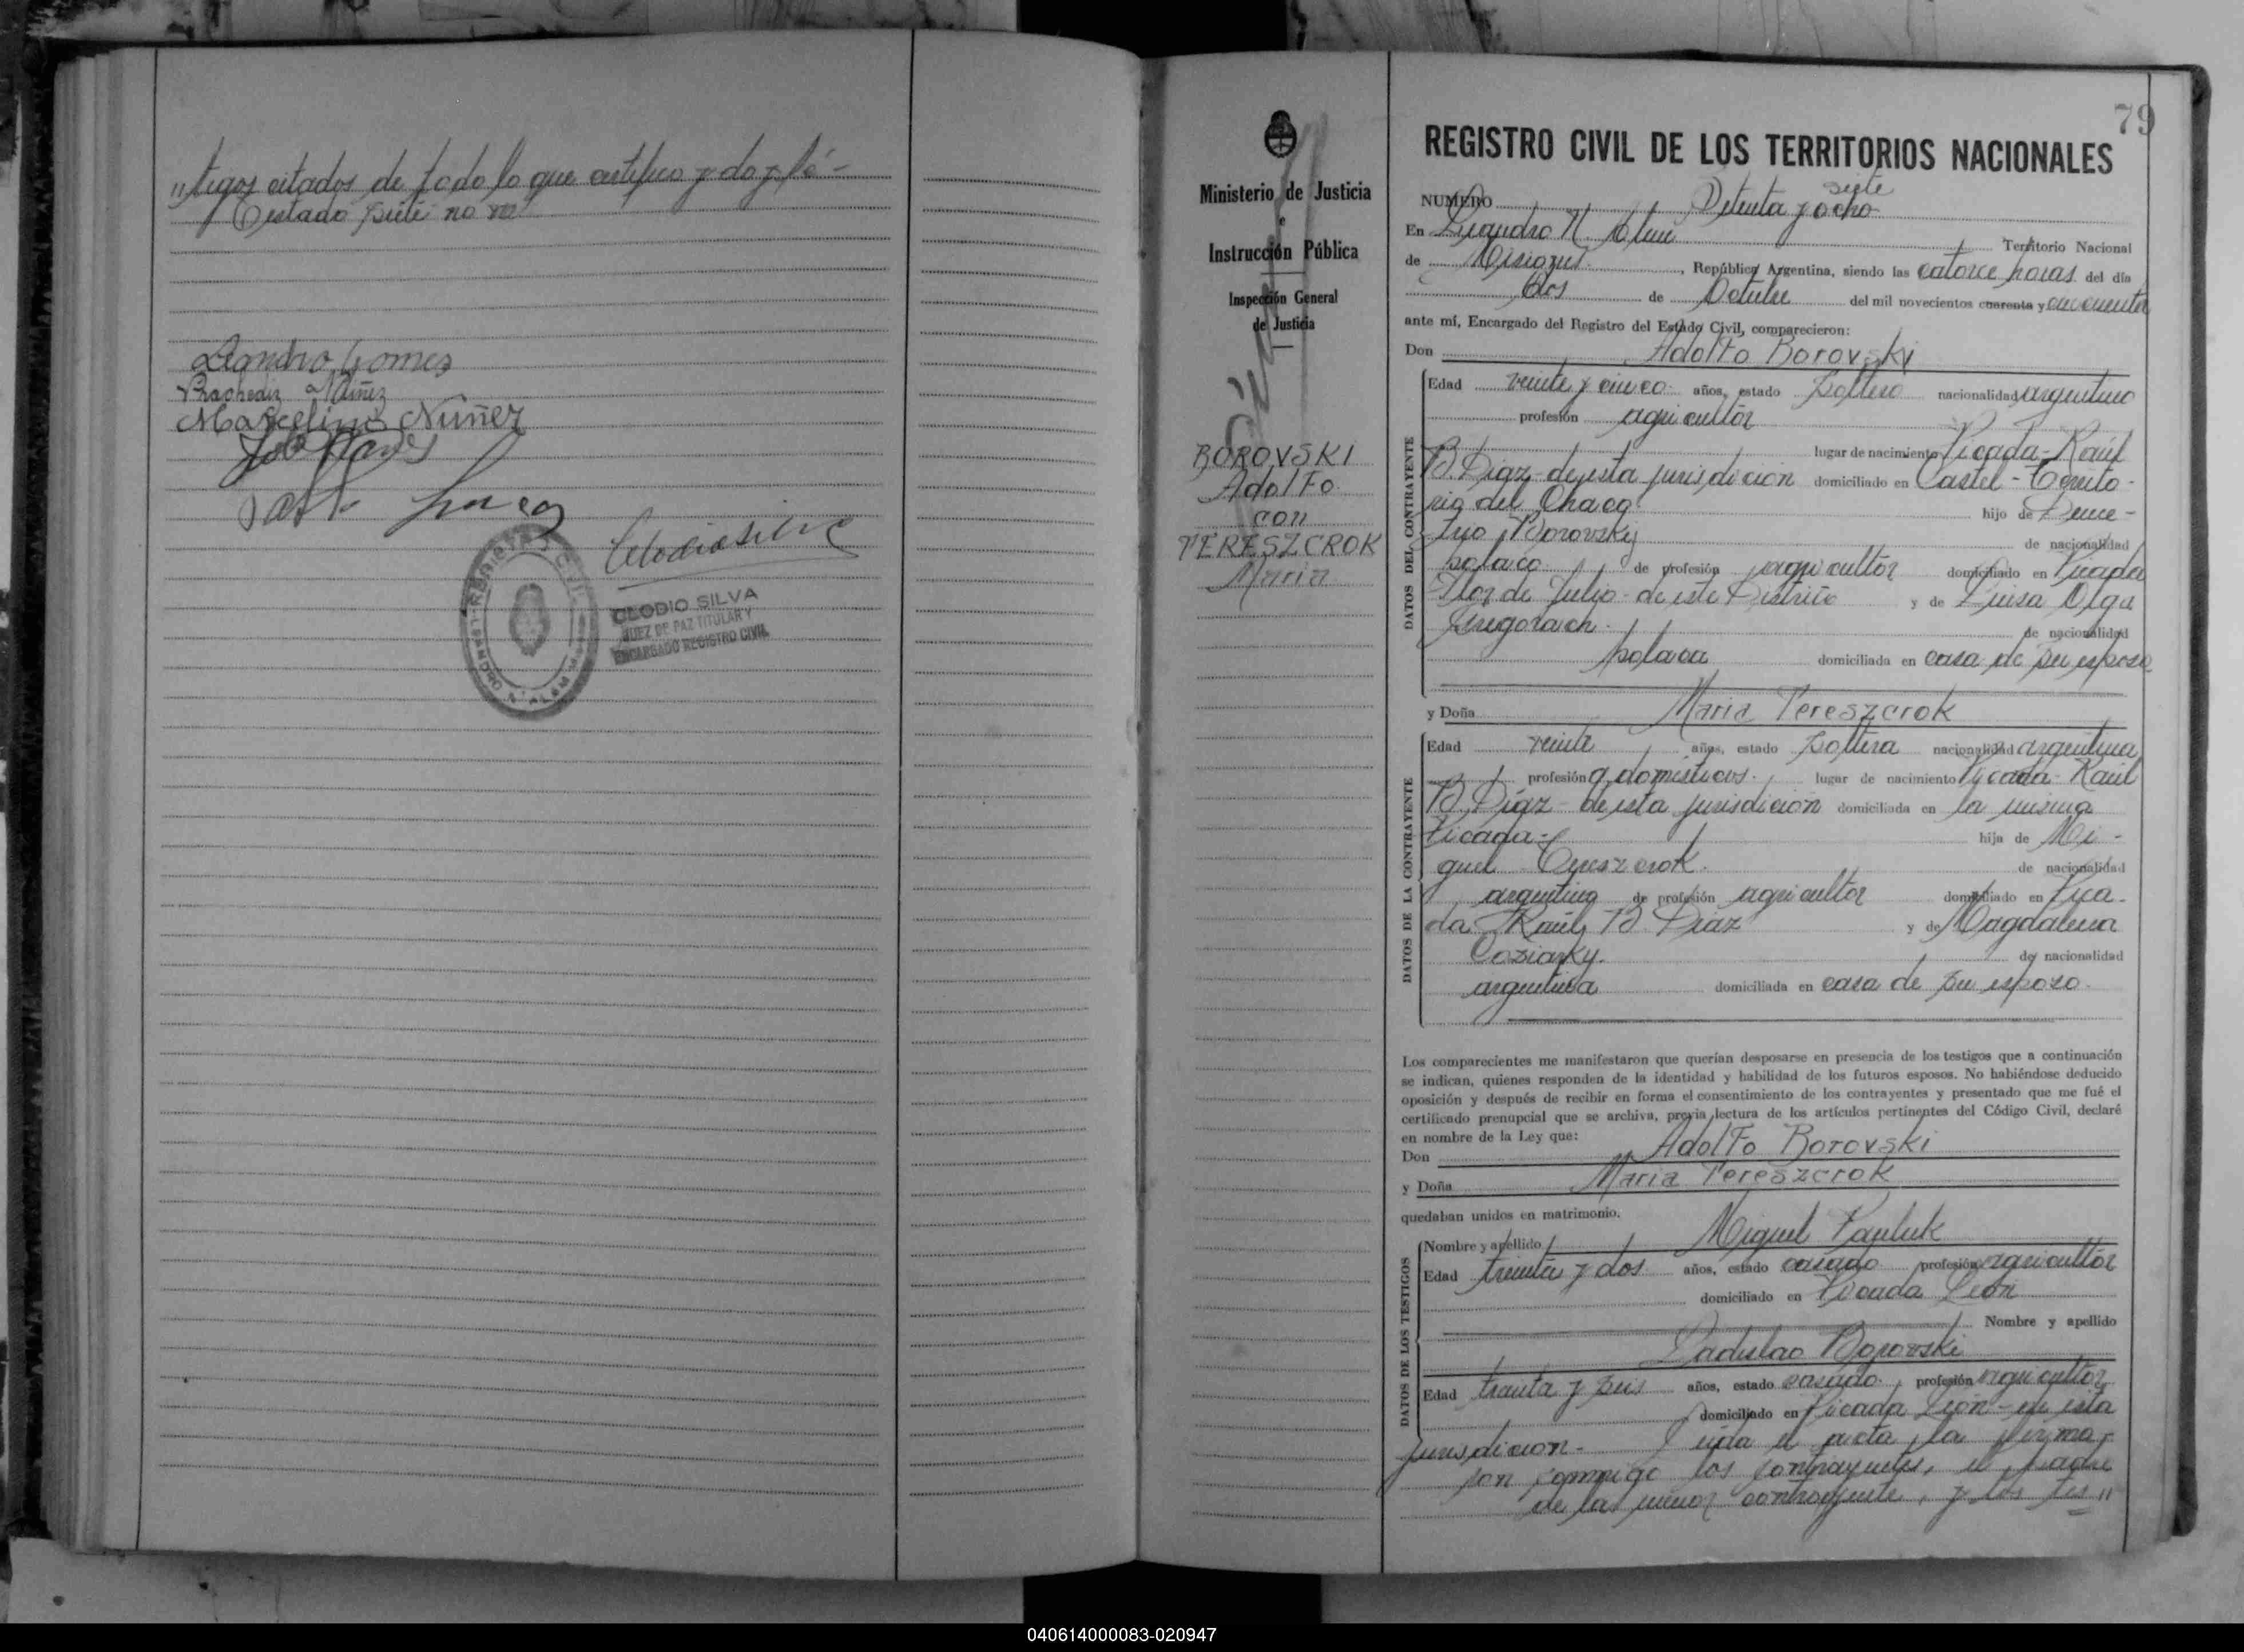 "tigos citados de todo lo que certifico y doy fé -
Testado siete no va
Leandro Gomes
Marcelino Nuñez
REGISTRO CIVIL
LEANDRO N. ALEM
Clodio Silva
CLODIO SILVA
JUEZ DE PAZ TITULAR Y
ENCARGADO REGISTRO CIVIL
79
Ministerio de Justicia
e
Instrucción Pública
Inspección General
de Justicia
BOROVSKI
Adolfo
con
TERESZCROK
Maria
REGISTRO CIVIL DE LOS TERRITORIOS NACIONALES
siete
NUMERO Setenta y ocho
En Leandro N. Alem Territorio Nacional
de Misiones, República Argentina, siendo las catorce horas del día
dos de Octubre del mil novecientos cuarenta y cincuenta
ante mí, Encargado del Registro del Estado Civil, comparecieron:
Don Adolfo Borovski
DATOS DEL CONTRAYENTE
Edad veinte y cinco años, estado soltero nacionalidad argentino
profesión agricultor
lugar de nacimiento Picada Raúl
B. Diaz - de esta jurisdicion domiciliado en Castel - Territo-
rio del Chaco hijo de Deme-
trio Borovsky de nacionalidad
polaco de profesión agricultor domiciliado en Picada
Flor de Julio - de este Distrito y de Luisa Olga
de nacionalidad
polaca domiciliada en casa de su esposo
y Doña Maria Tereszcrok
DATOS DE LA CONTRAYENTE
Edad veinte años, estado soltera nacionalidad argentina
profesión q. domésticos. lugar de nacimiento Picada Raúl
B. Diaz - de esta jurisdicion domiciliada en la misma
Picada - hija de Mi-
guel Tereszcrok. de nacionalidad
argentino de profesión agricultor domiciliado en Pica-
da Raúl B. Diaz y de Magdalena
Coziarky. de nacionalidad
argentina domiciliada en casa de su esposo.
Los comparecientes me manifestaron que querían desposarse en presencia de los testigos que a continuación
se indican, quienes responden de la identidad y habilidad de los futuros esposos. No habiéndose deducido
oposición y después de recibir en forma el consentimiento de los contrayentes y presentado que me fué el
certificado prenupcial que se archiva, previa lectura de los artículos pertinentes del Código Civil, declaré
en nombre de la Ley que:
Don Adolfo Borovski
y Doña Maria Tereszcrok
quedaban unidos en matrimonio.
DATOS DE LOS TESTIGOS
Nombre y apellido Miguel Pauluk
Edad treinta y dos años, estado casado profesión agricultor
domiciliado en Picada León
Nombre y apellido
Ladislao Borovski
Edad treinta y seis años, estado casado, profesión agricultor
domiciliado en Picada León - de esta
jurisdicion - Leida el acta, la firma-
ron conmigo los contrayentes, el padre
de la menor contrayente, y los tes"
040614000083-020947